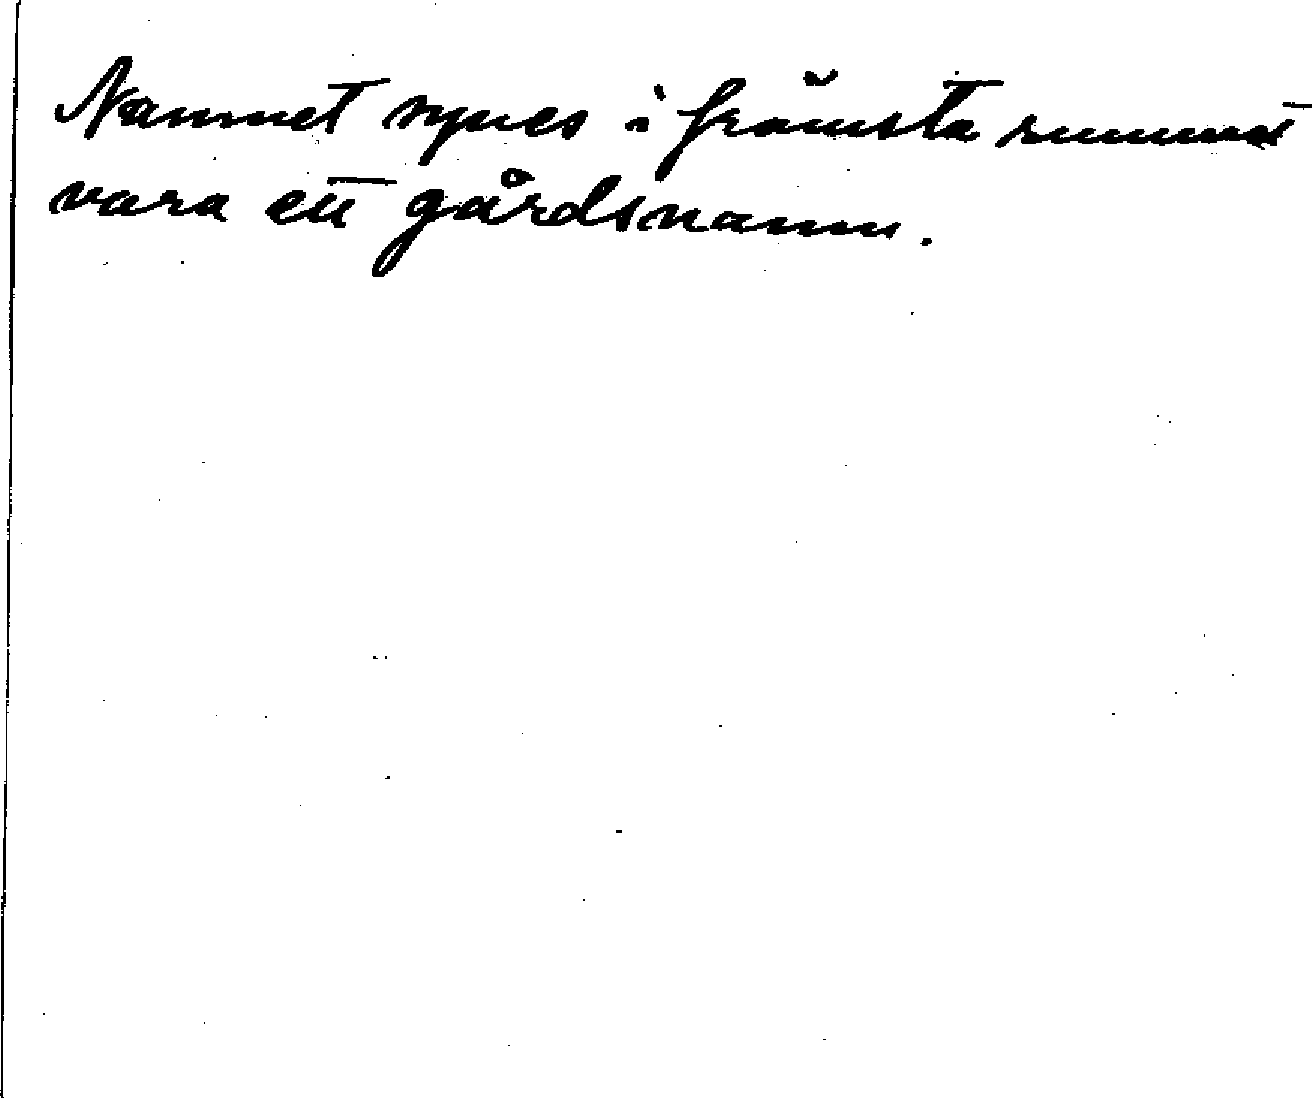 Namnet synes i främsta rummet
vara ett gårdsnamn.